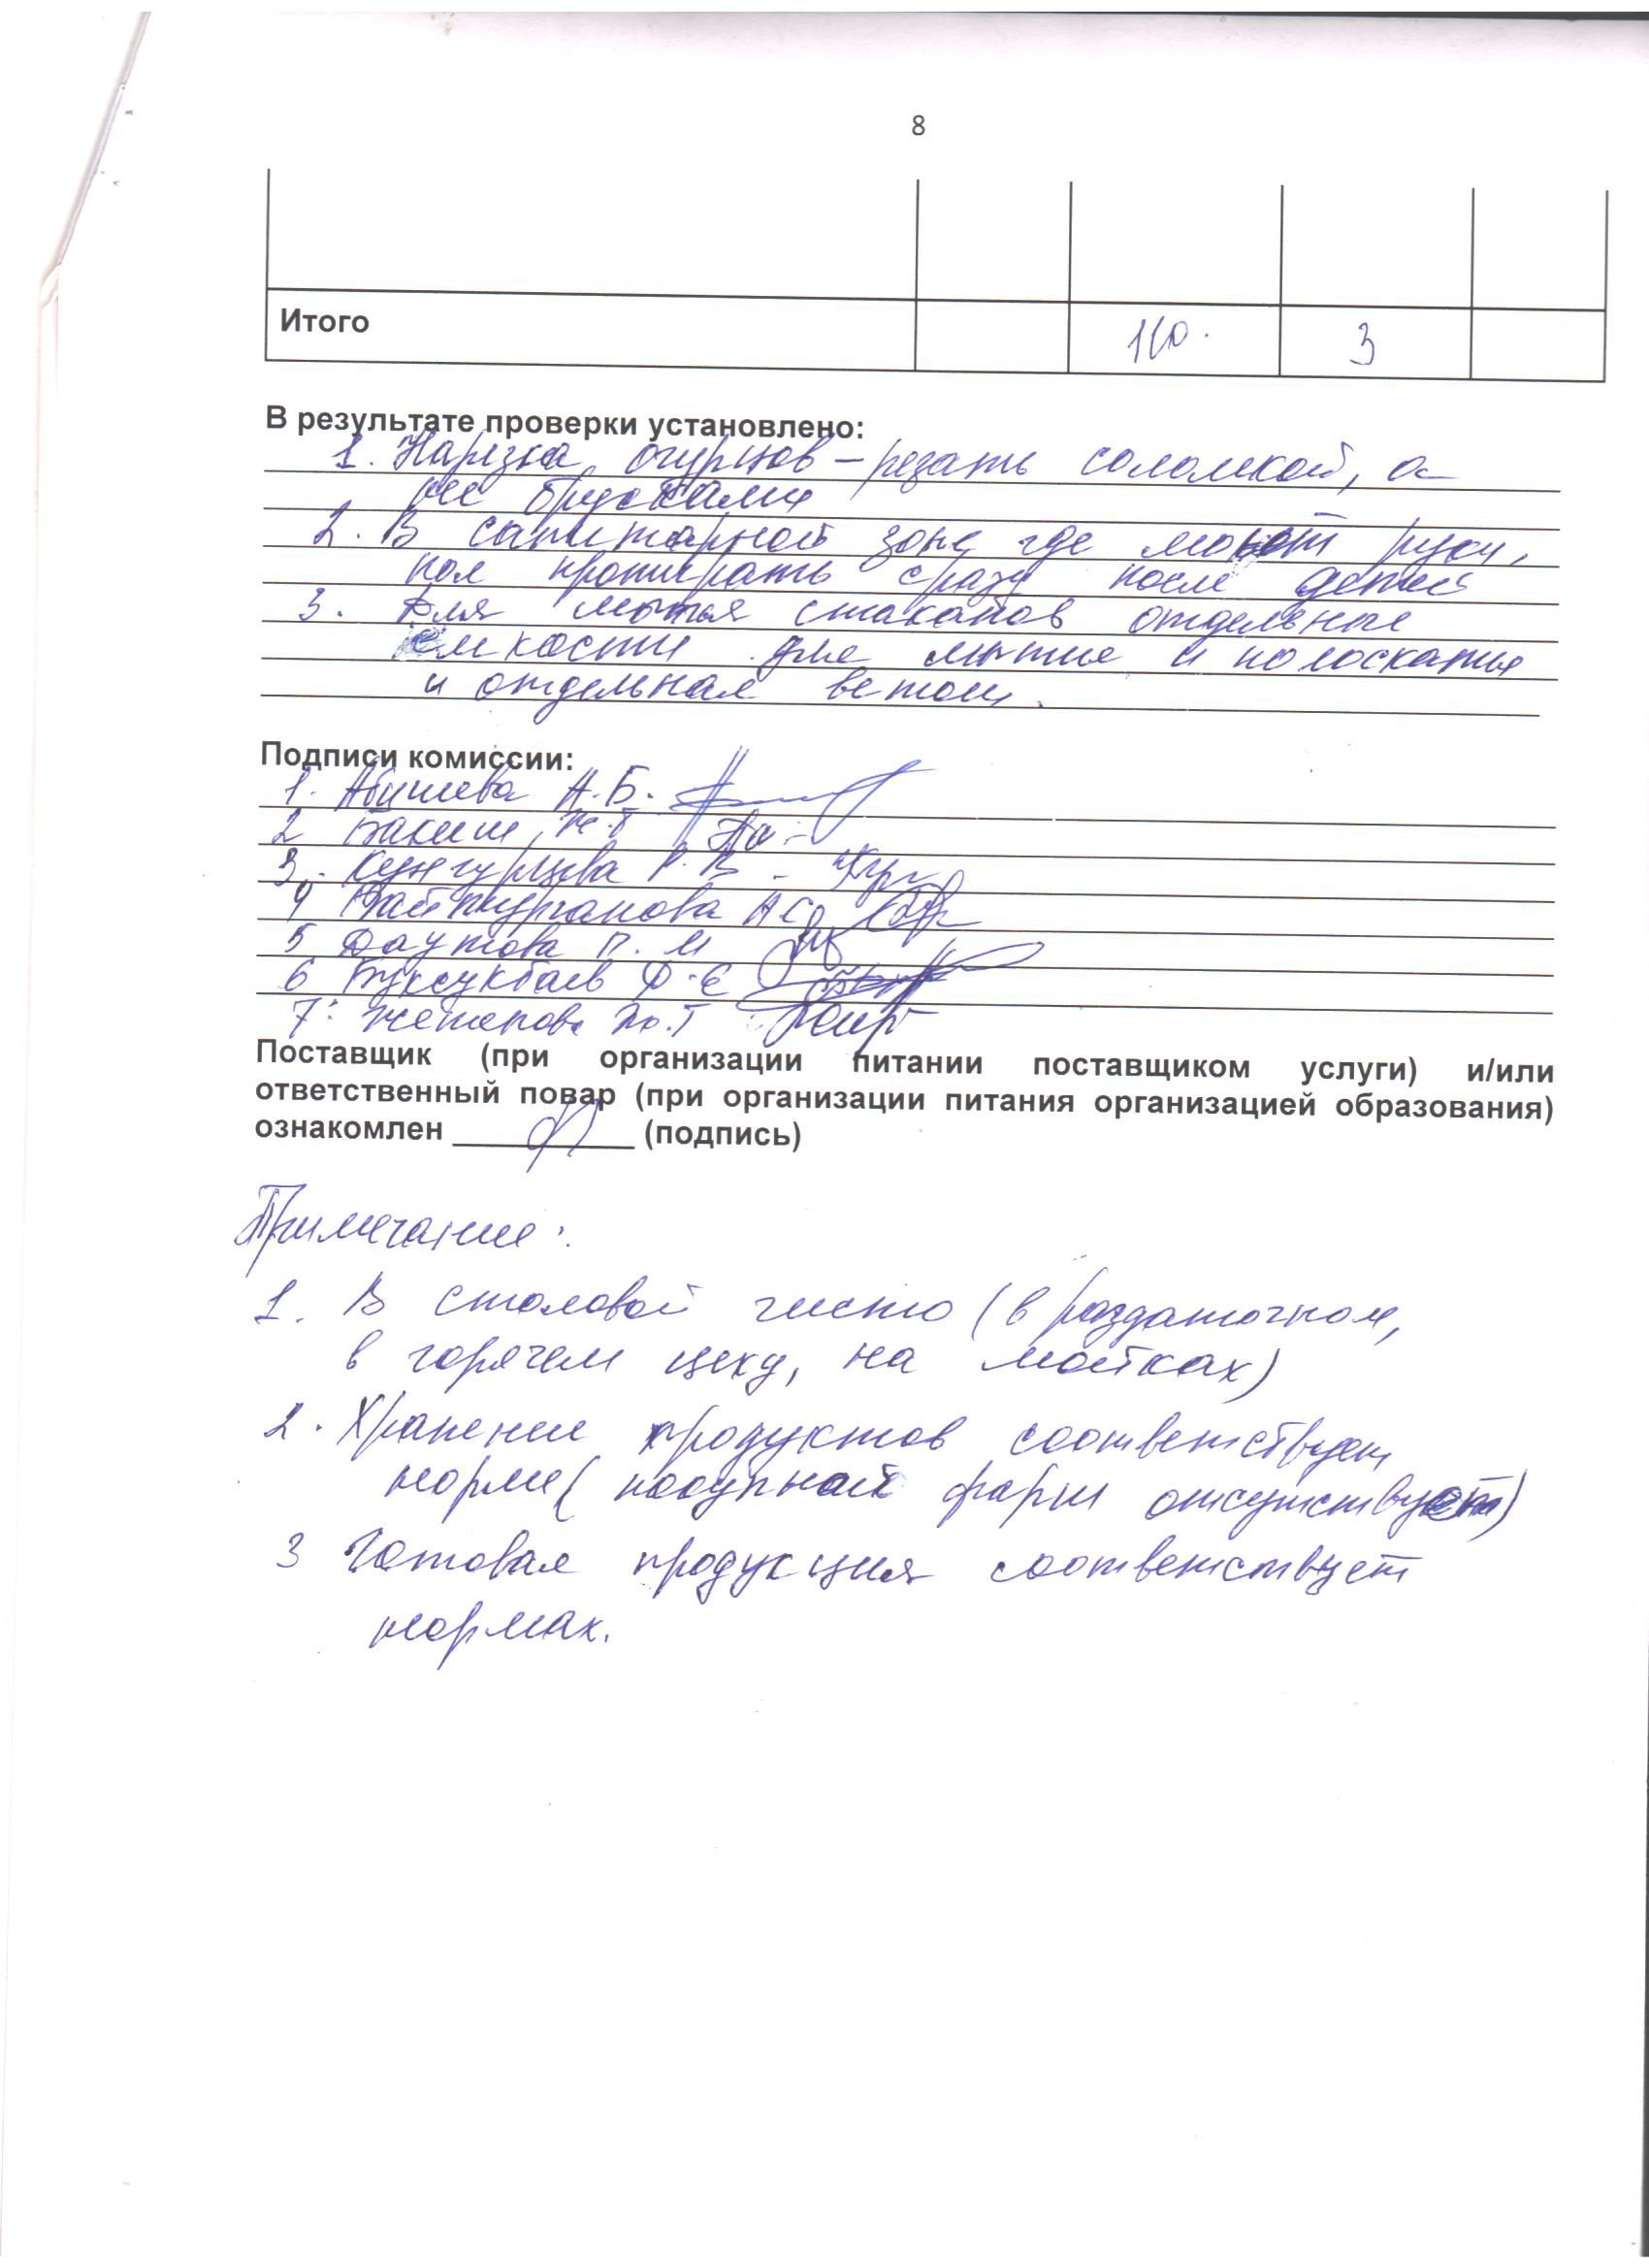 8
Итого 110. 3
В результате проверки установлено:
1. Нарезка огурцов – резать соломкой, а
не брусками
2. В санитарной зоне где моют руки,
пол протирать сразу после детей
3. Для мытья стаканов отдельные
емкости для мытья и полоскать
и отдельная ветош.
Подписи комиссии:
1. Абишева А.Б.
2 Бакиш
3. Кунгурцева Р. В -
4 Байжурганова А С
5 Даутова П. М
6 Буксукбаев Д. Е
7. Жетерова
Поставщик (при организации питании поставщиком услуги) и/или
ответственный повар (при организации питания организацией образования)
ознакомлен (подпись)
Примечание:
1. В столовой чисто (в раздаточном,
в горячем цеху, на мойках)
2. Хранение продуктов соответствует
норме ( фарш отсутствует)
3 Готовая продукция соответствует
нормах.